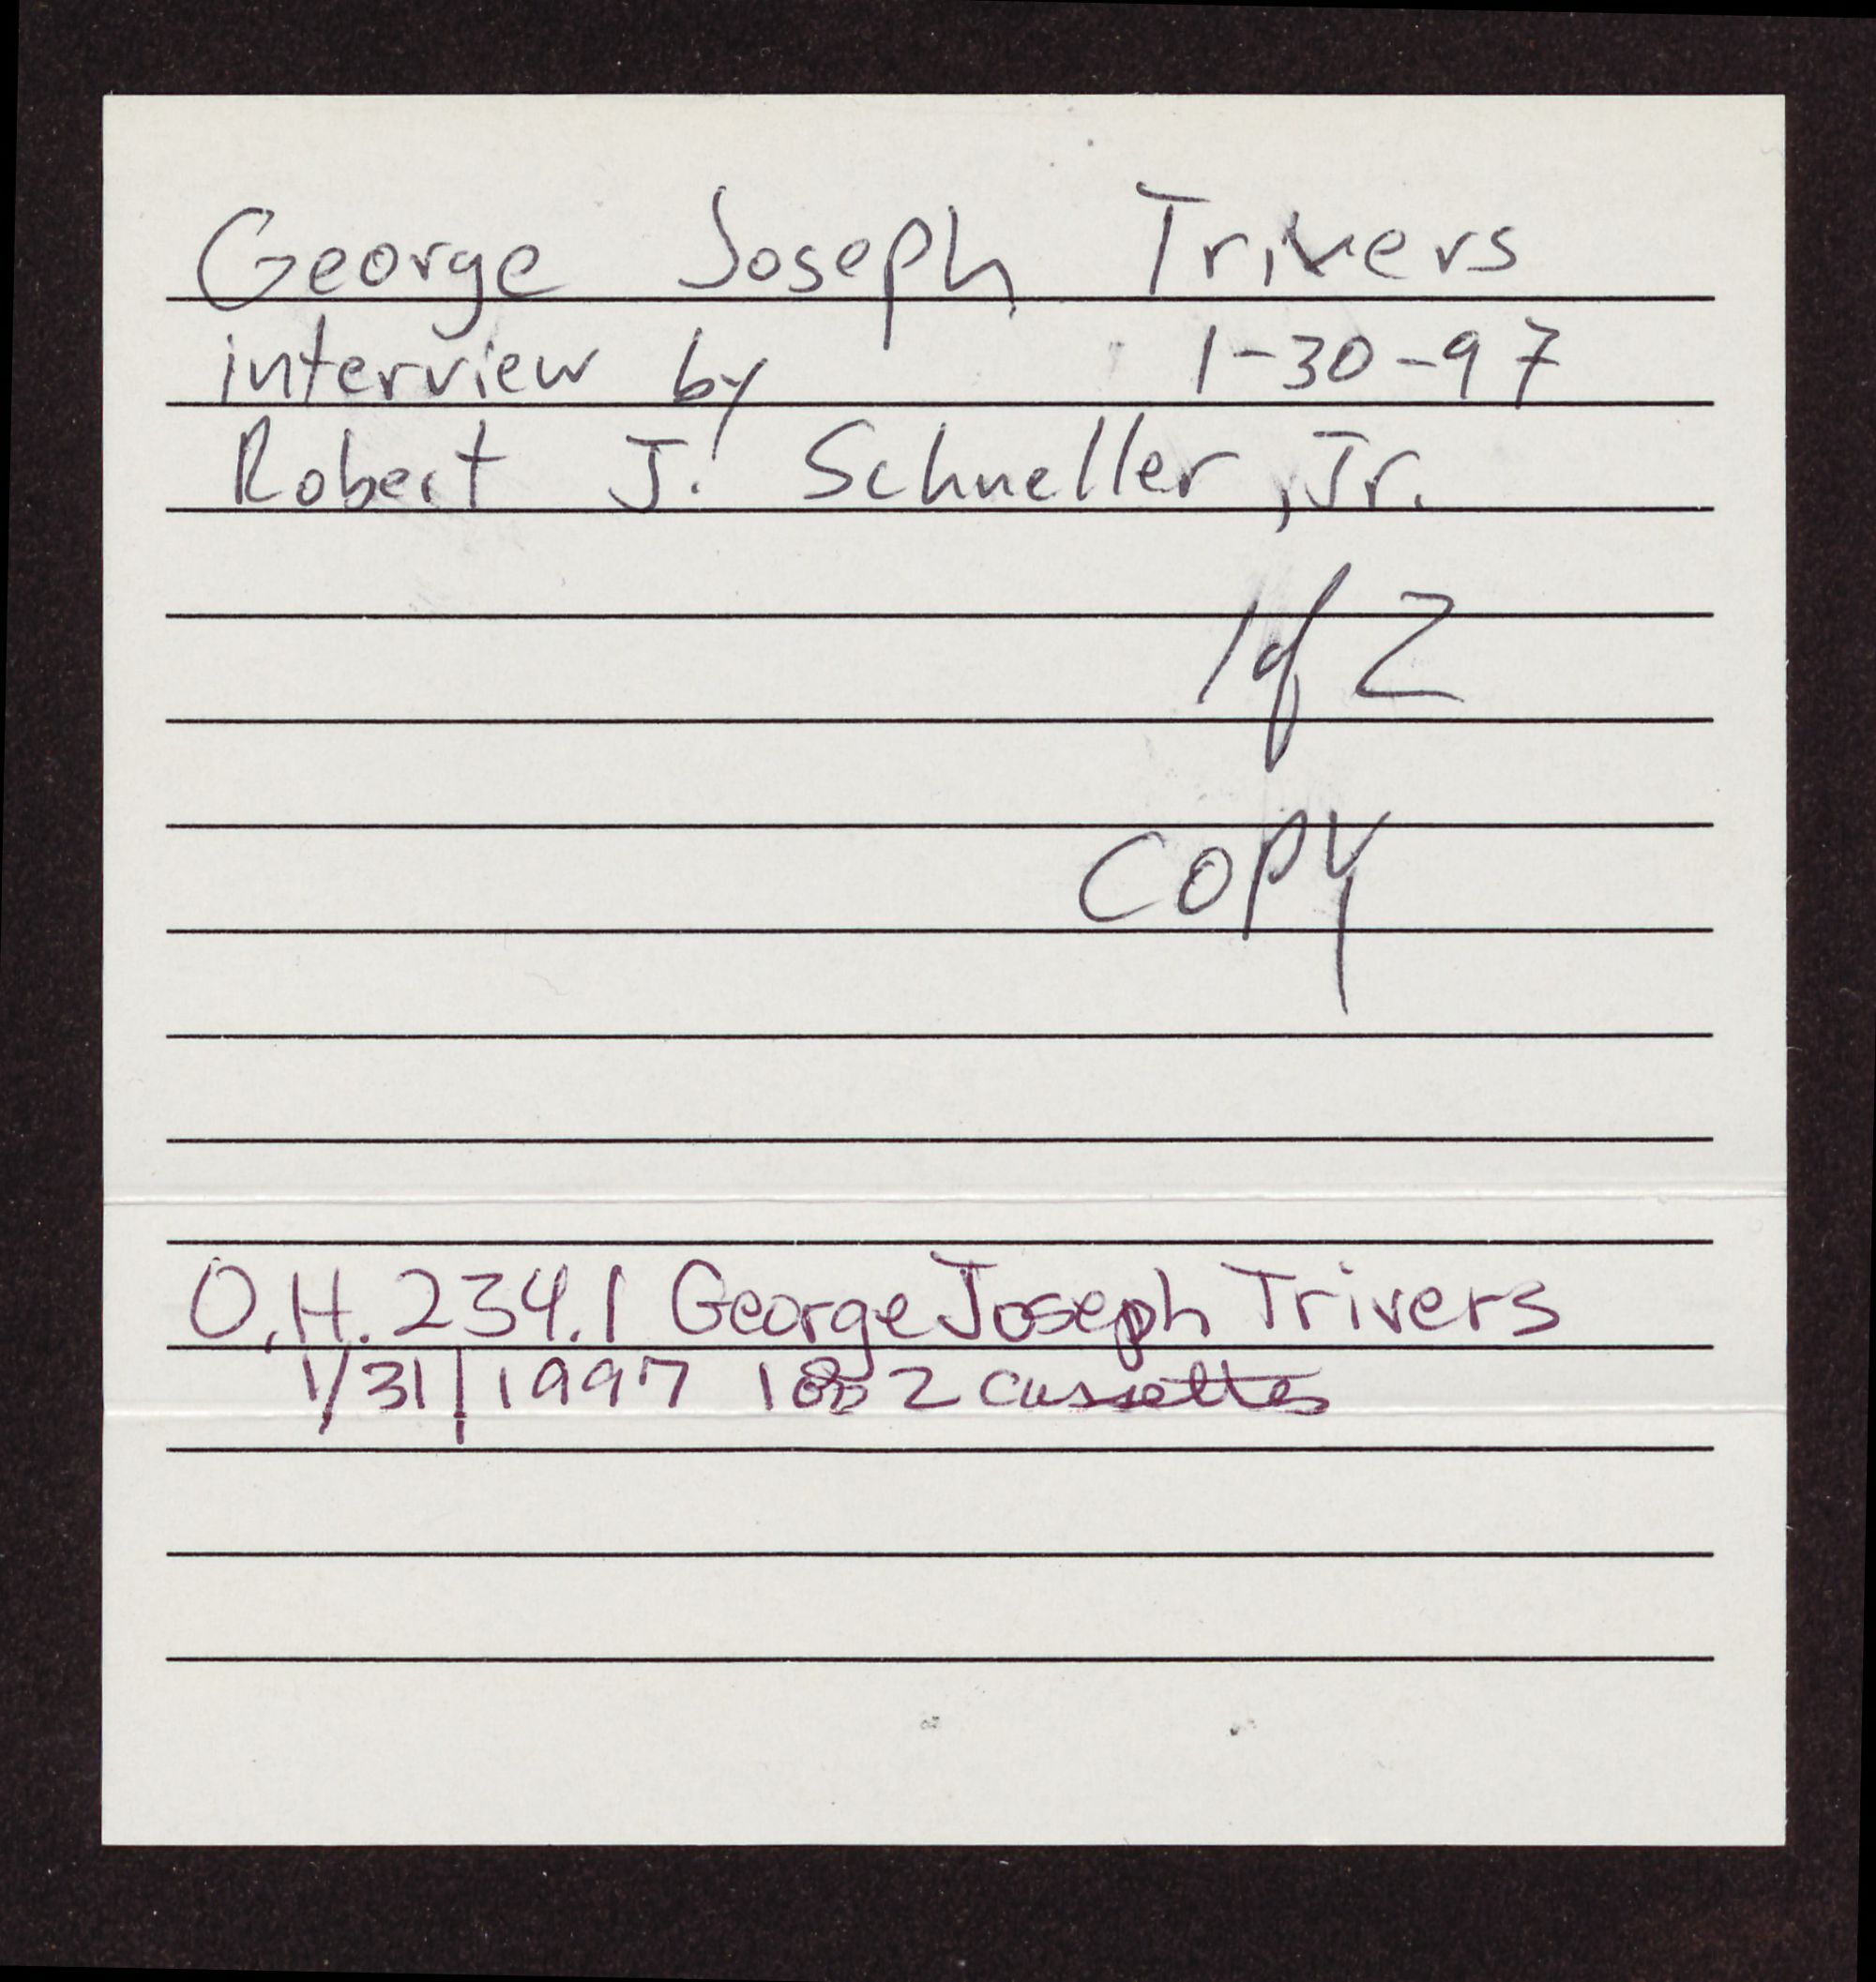 George Joseph Trivers
interview by 1-30-97
Robert J. Schneller, Jr.
1 of 2
COPY
O.H. 234.1 George Joseph Trivers
1/31/1997 1 of 2 cassettes